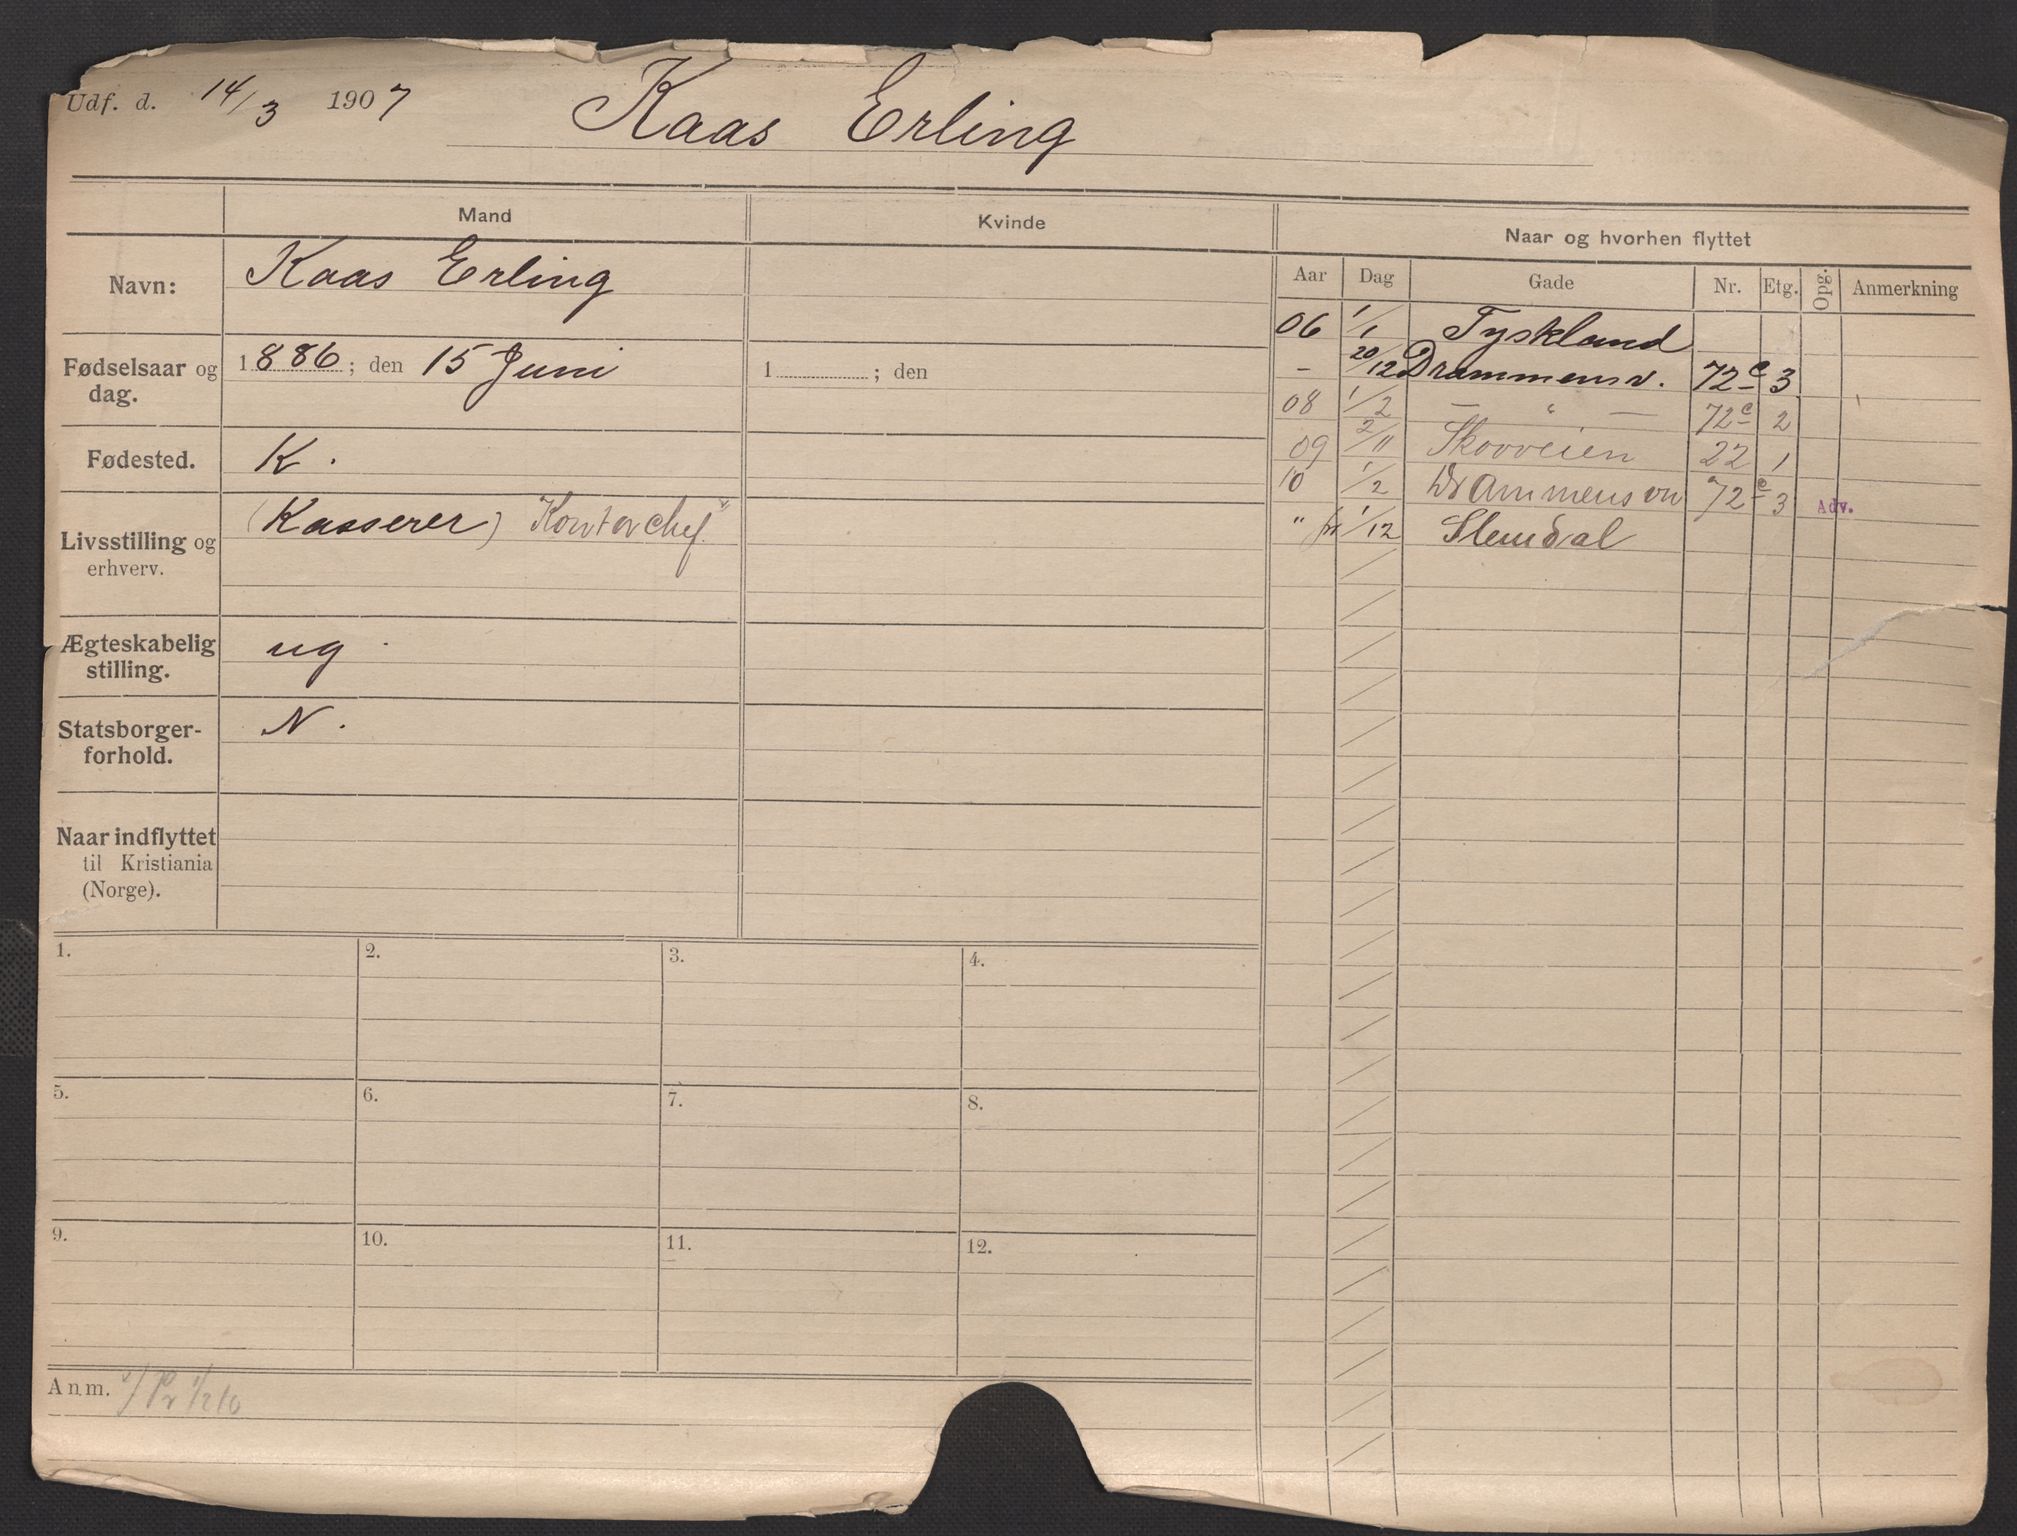 Udf. d. 14/3 1907
Kaas Erling
Mand
Kvinde
Naar og hvorhen flyttet
Navn:
Kaas Erling
Aar Dag Gade Nr. Etg. Opg. Anmerkning
06 1/1 Tyskland
Fødselsaar og dag.
1886; den 15 Juni
1 ; den
- 20/12 Drammensv. 72c 3
08 1/2 — " — 72c 2
Fødested.
K.
09 2/11 Skovveien 22 1
10 1/2 Drammensvn 72c 3 Adv.
Livsstilling og erhverv.
(Kasserer) Kontorchef
" fr 1/12 Slemdal
Ægteskabelig stilling.
ug.
Statsborger-
forhold.
N.
Naar indflyttet
til Kristiania
(Norge).
1. 2. 3. 4.
5. 6. 7. 8.
9. 10. 11. 12.
Anm.